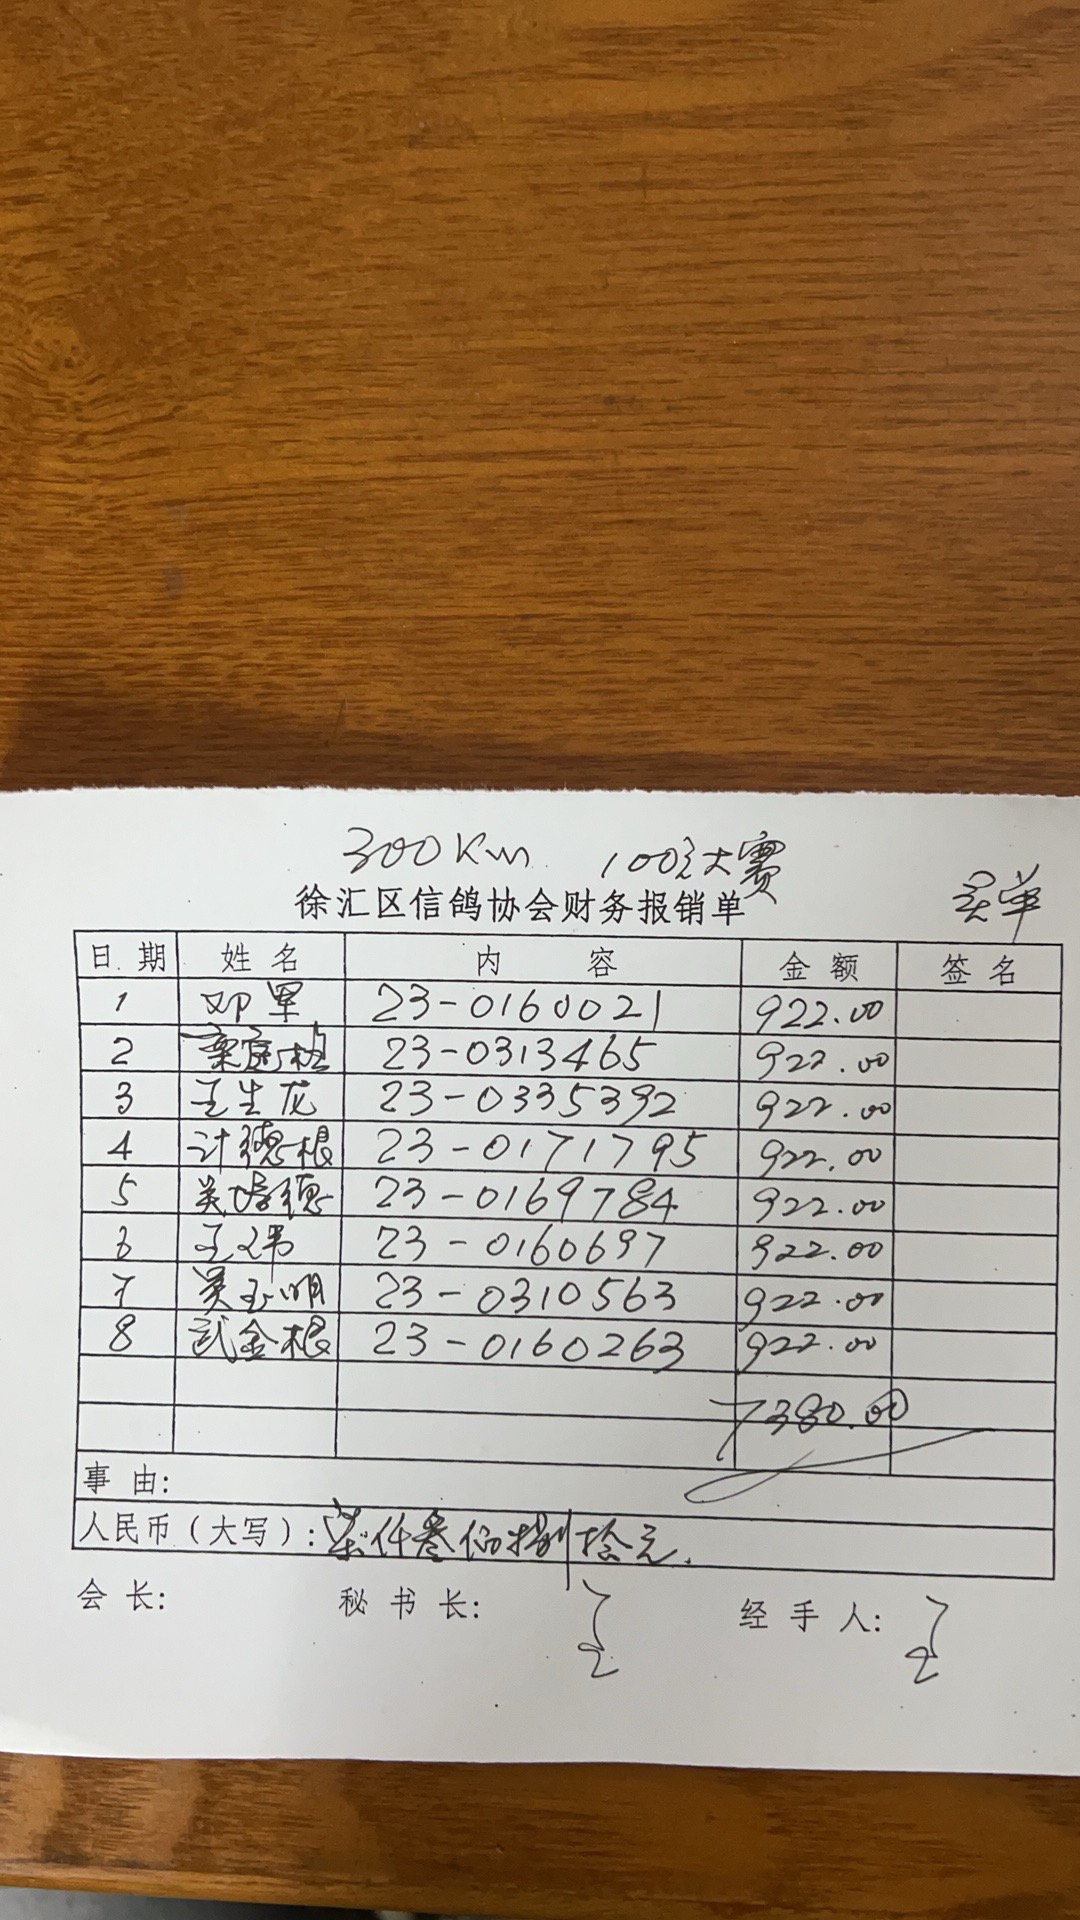 300Km 100元大赛
徐汇区信鸽协会财务报销单
日期 姓名 内容 金额 签名
1 邓军 23-0160021 922.00
2 23-0313465 922.00
3 王生龙 23-0335392 922.00
4 计德根 23-0171795 922.00
5 23-0169784 922.00
6 王文伟 23-0160697 922.00
7 吴玉明 23-0310563 922.00
8 武金根 23-0160263 922.00
7380.00
事由:
人民币(大写): 柒仟叁佰捌拾元.
会长: 秘书长: 经手人: